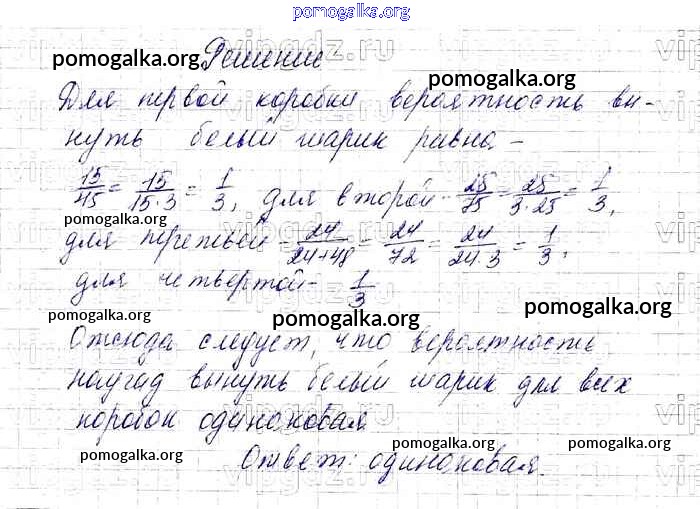 pomogalka.org
Решение
Для первой коробки вероятность вы-
нуть белый шарик равна -
15/45 = 15/15·3 = 1/3, для второй - 25/75 = 25/3·25 = 1/3,
для третьей - 24/24+48 = 24/72 = 24/24·3 = 1/3,
для четвертой - 1/3
Отсюда следует, что вероятность
наугад вынуть белый шарик для всех
коробок одинаковая
Ответ: одинаковая.
pomogalka.org
pomogalka.org
pomogalka.org
pomogalka.org
pomogalka.org
pomogalka.org
pomogalka.org
pomogalka.org
pomogalka.org
pomogalka.org
pomogalka.org
vipgdz.ru